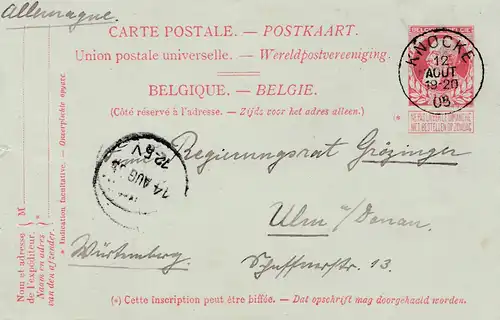 Allemagne
CARTE POSTALE. — POSTKAART.
Union postale universelle. — Wereldpostvereeniging.
BELGIQUE. — BELGIE.
(Côté réservé à l'adresse. — Zijde voor het adres alleen.)
KNOCKE
12
AOUT
19-20
08
NE PAS LIVRER LE DIMANCHE
NIET BESTELLEN OP ZONDAG
(*
14 AUG 08
12-6 V
Regierungsrat Grözinger
Ulm a/Donau
Württemberg
Schaffnerstr. 13.
M
Nom et adresse
de l'expéditeur.
Naam en adres
van den afzender.
)*
* Indication facultative. — Onverplichte opgave.
(*) Cette inscription peut être biffée. — Dat opschrift mag doorgehaald worden.